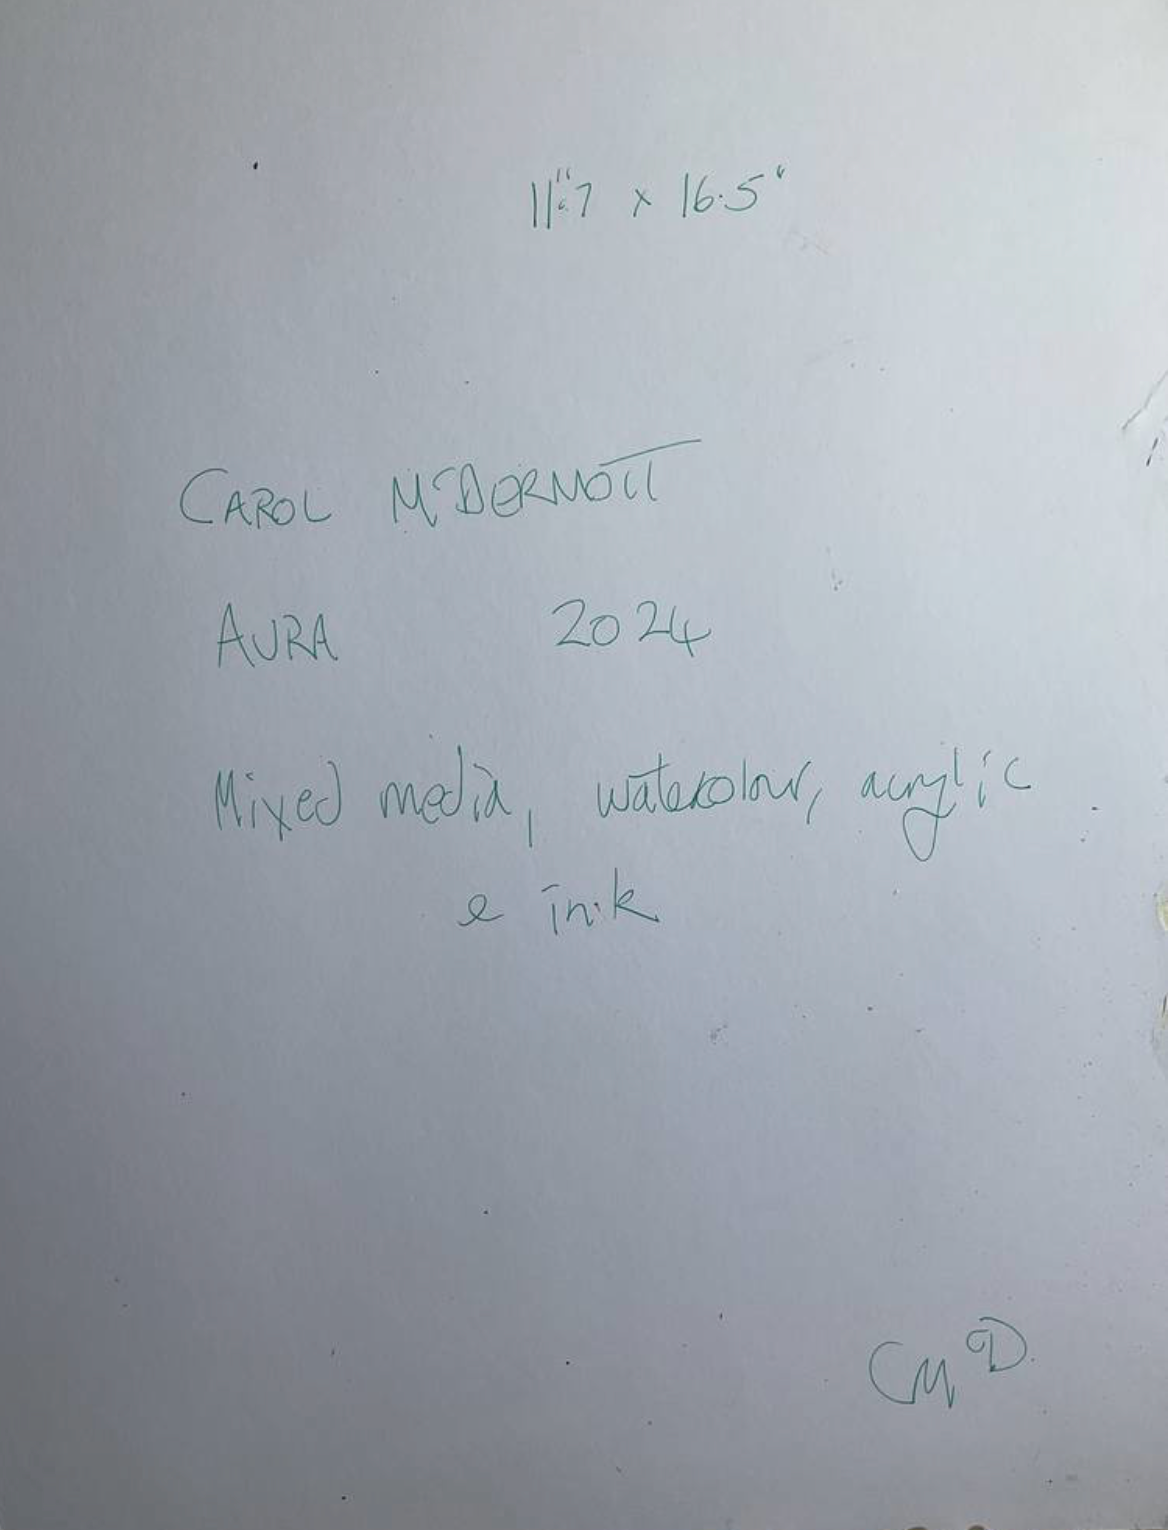 11".7 x 16.5"
CAROL McDERMOTT
AURA 2024
Mixed media, watercolour, acrylic
e ink
CMD